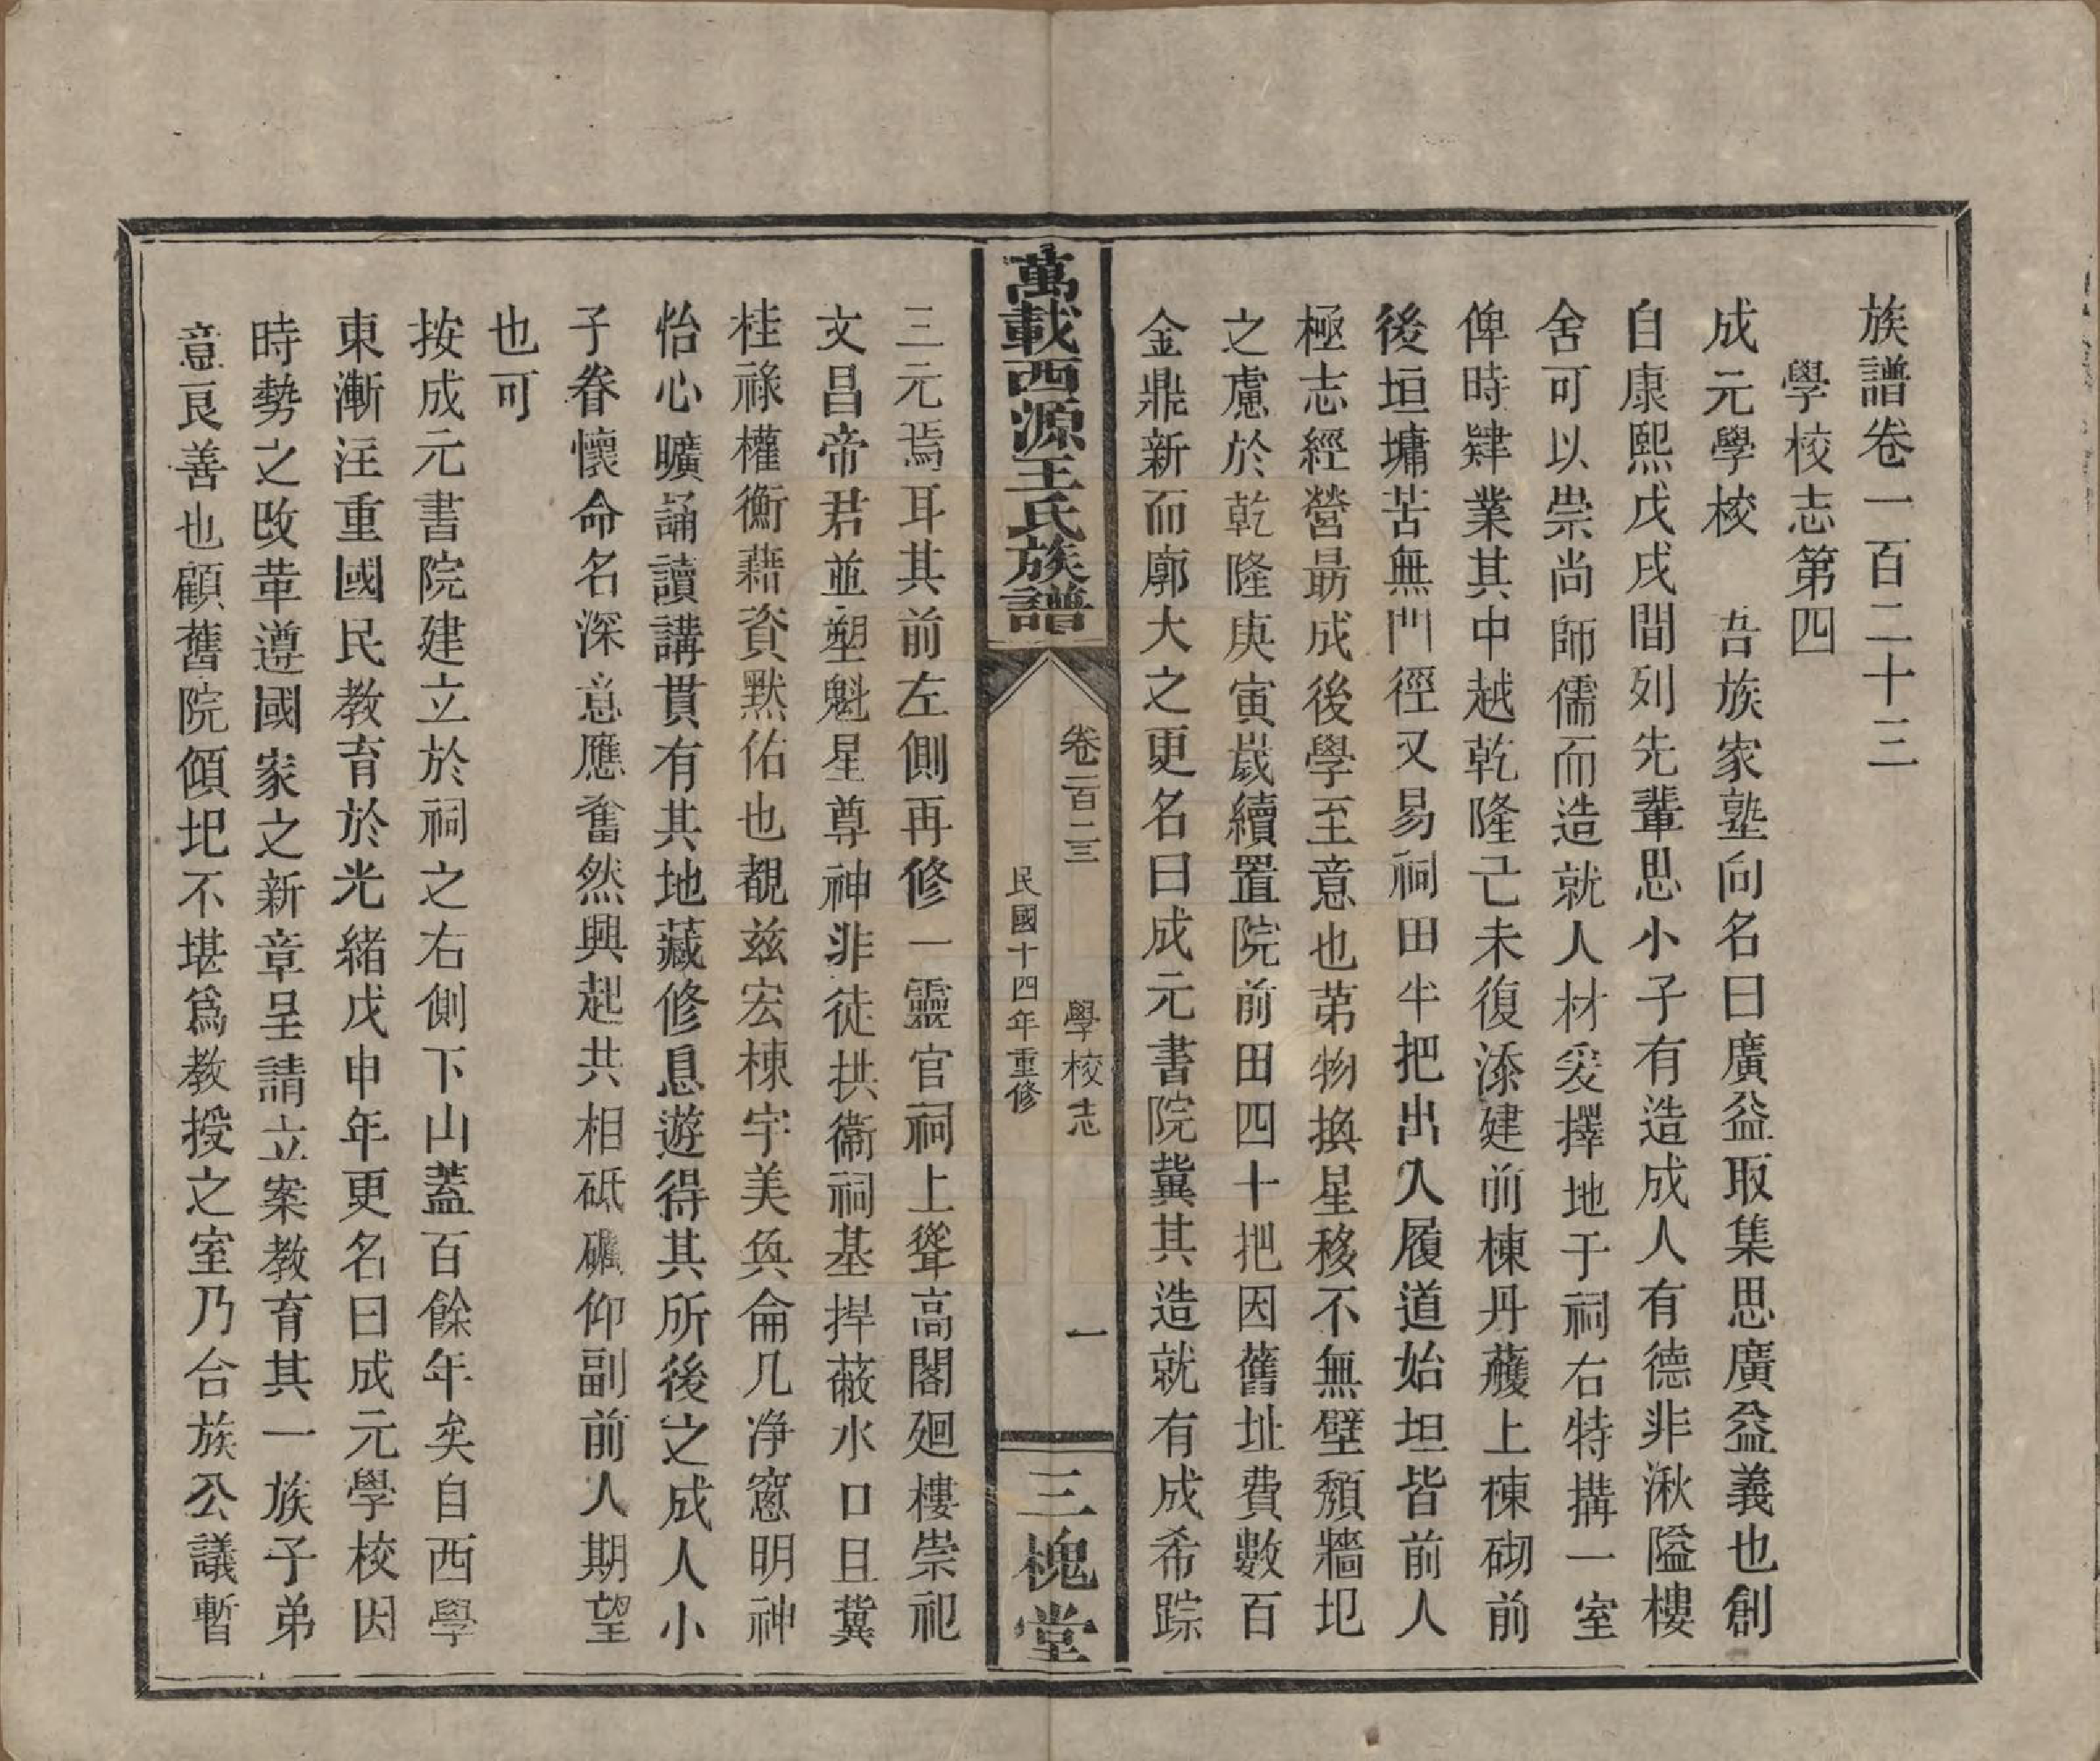 族譜卷一百二十三
學校志第四
成元學校　吾族家塾向名曰廣益取集思廣益義也創
自康熙戊戌間列先輩思小子有造成人有德非湫隘樓
舍可以崇尚師儒而造就人材爰擇地于祠右特搆一室
俾時肄業其中越乾隆己未復添建前棟丹蘐上棟砌前
後垣墉苦無門徑又易祠田半把出入履道始坦皆前人
極志經營勗成後學至意也苐物換星移不無壁頽牆圯
之慮於乾隆庚寅歲續置院前田四十把因舊址費數百
金鼎新而廓大之更名曰成元書院冀其造就有成希踪
萬載西源王氏族譜
卷一百二三
學校志
一
民國十四年重修
三槐堂
三元焉耳其前左側再修一靈官祠上聳高閣廻樓崇祀
文昌帝君並塑魁星尊神非徒拱衞祠基捍蔽水口且冀
桂祿權衡藉資默佑也覩茲宏棟宇美奐侖几净窻明神
怡心曠誦讀講貫有其地藏修息遊得其所後之成人小
子眷懷命名深意應奮然興起共相砥礪仰副前人期望
也可
按成元書院建立於祠之右側下山蓋百餘年矣自西學
東漸注重國民教育於光緒戊申年更名曰成元學校因
時勢之改革遵國家之新章呈請立案教育其一族子弟
意良善也顧舊院傾圯不堪爲教授之室乃合族公議暫